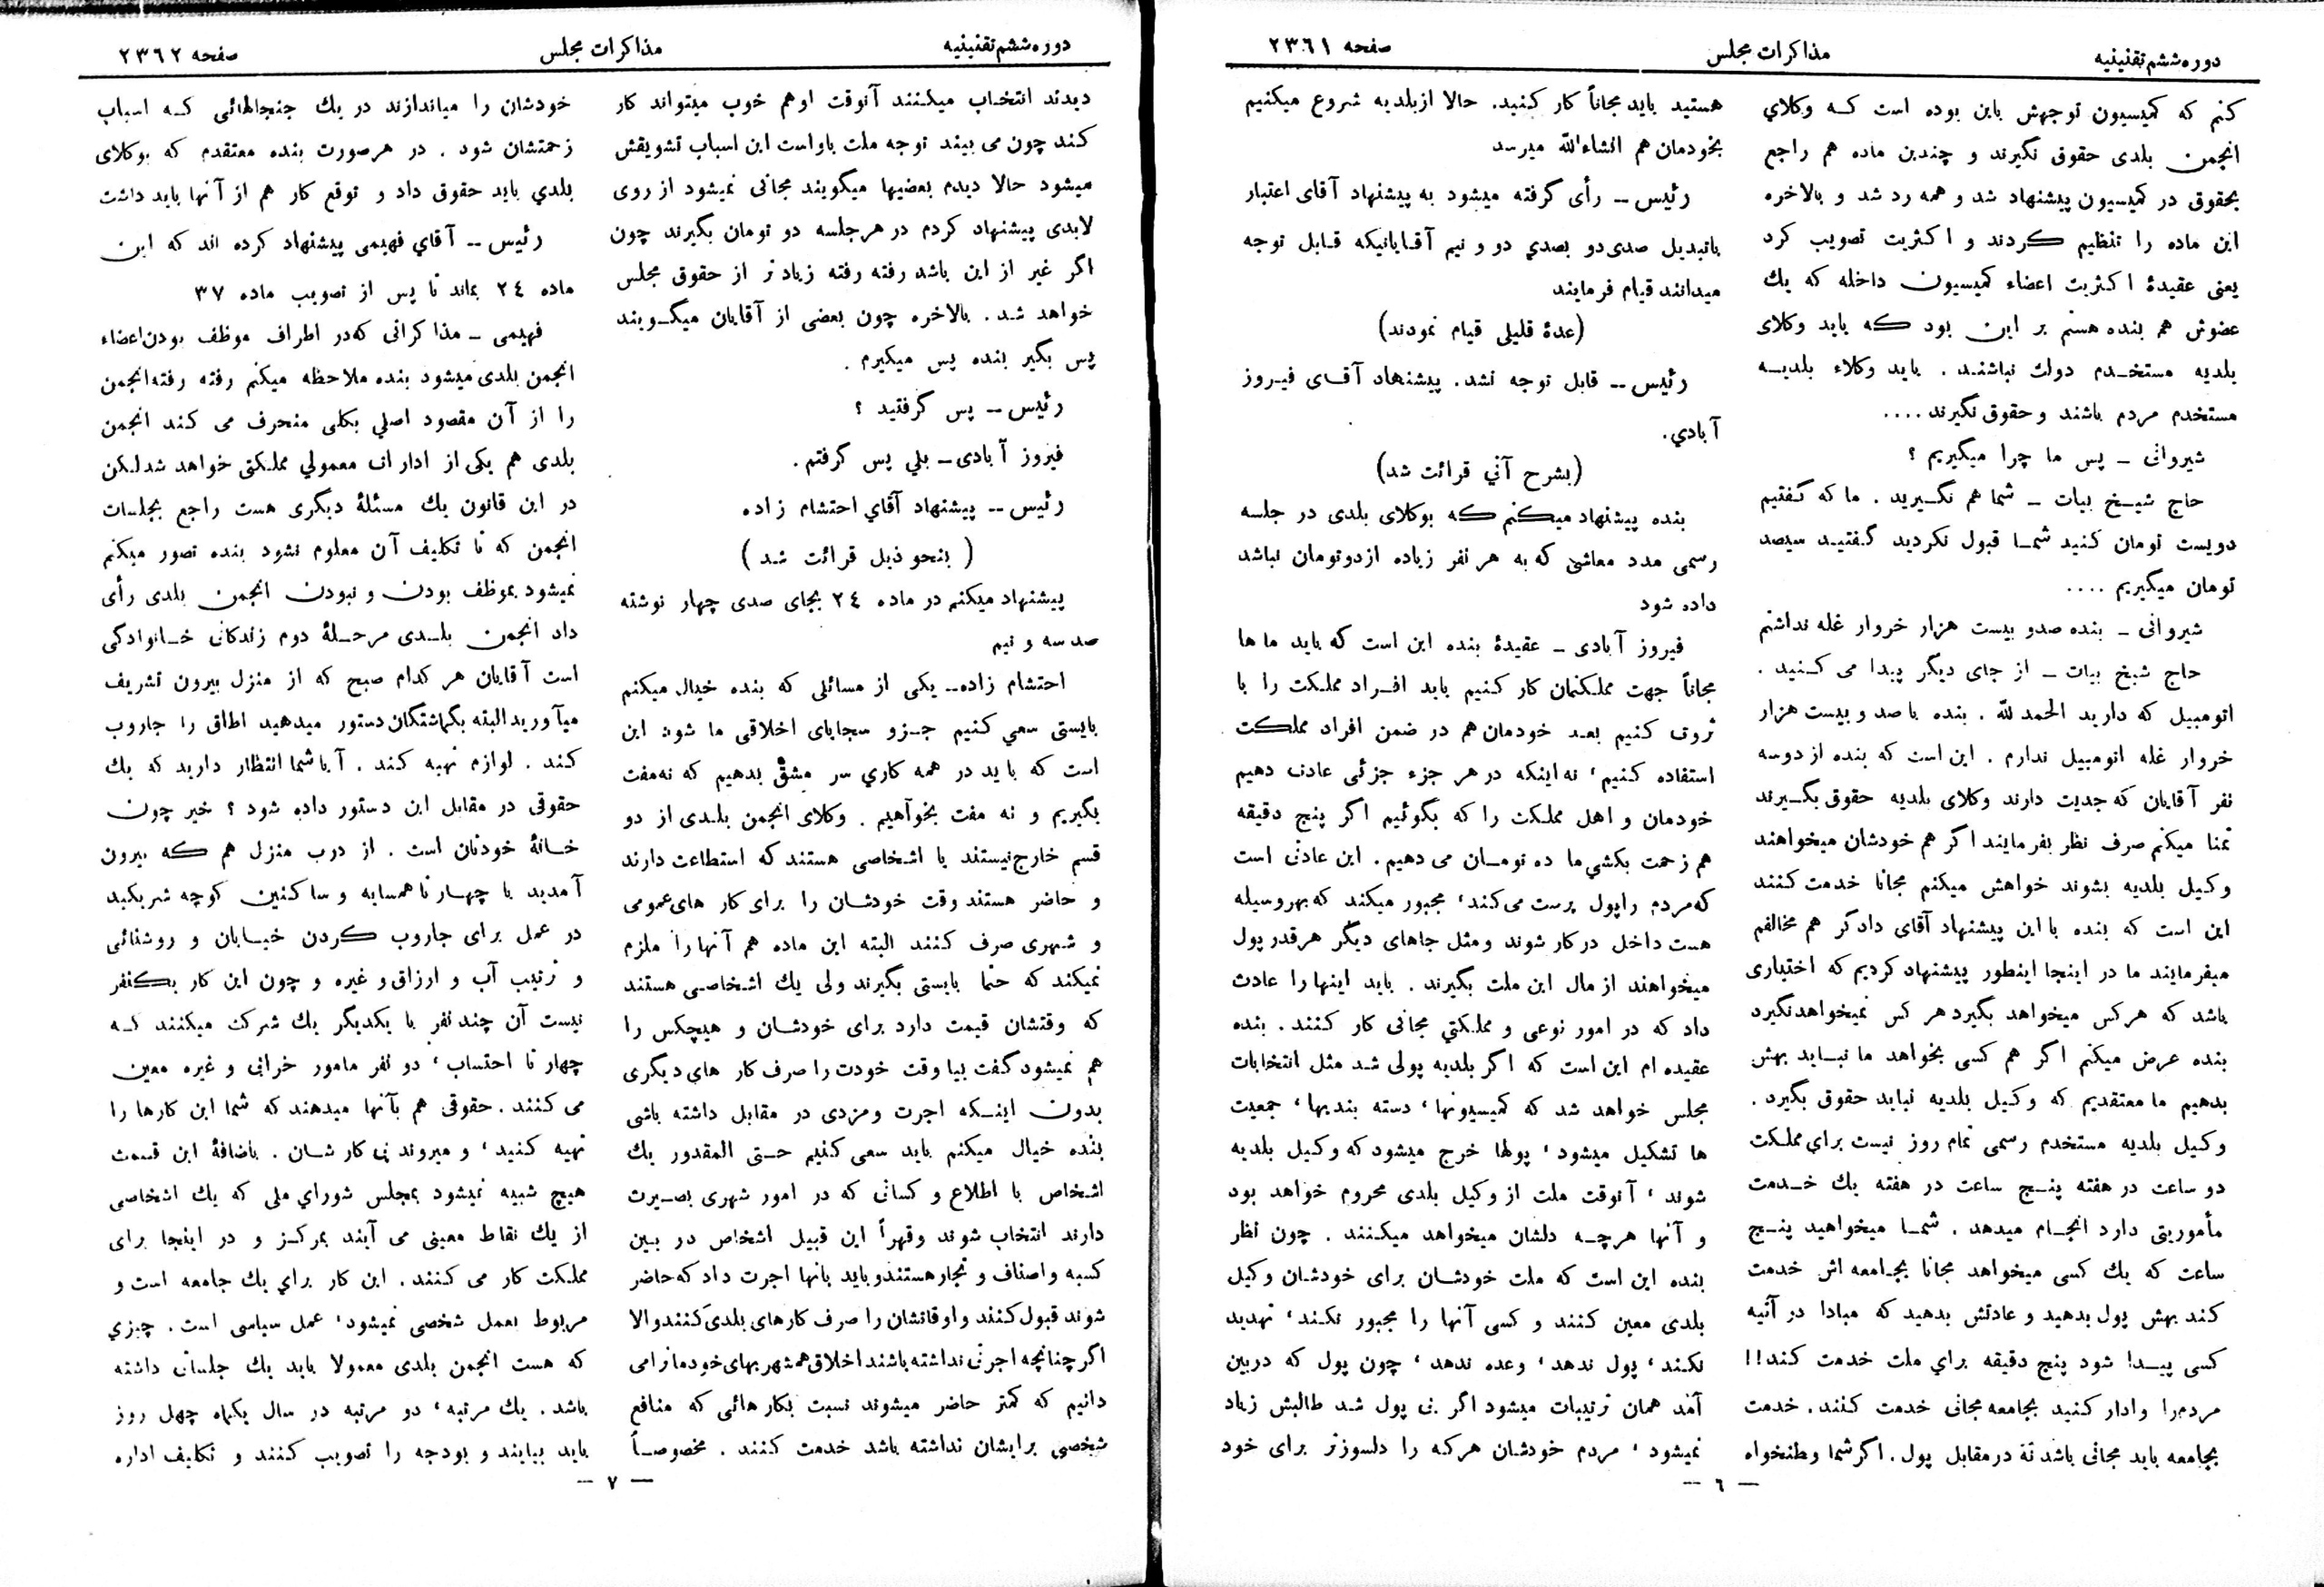 دوره ششم تقنینیه
مذاکرات مجلس
صفحه ۲۳۶۱
کنم که کمیسیون توجهش باین بوده است که وکلای
انجمن بلدی حقوق نگیرند و چندین ماده هم راجع
بحقوق در کمیسیون پیشنهاد شد و همه رد شد و بالاخره
این ماده را تنظیم کردند و اکثریت تصویب کرد
یعنی عقیدهٔ اکثریت اعضاء کمیسیون داخله که یك
عضوش هم بنده هستم بر این بود که باید وکلای
بلدیه مستخدم دولت نباشند . باید وکلاء بلدیه
مستخدم مردم باشند و حقوق نگیرند ....
شیروانی ـ پس ما چرا میگیریم ؟
حاج شیخ بیات ـ شما هم نگیرید . ما که گفتیم
دویست تومان کنید شما قبول نکردید گفتید سیصد
تومان میگیریم ....
شیروانی ـ بنده صدو بیست هزار خروار غله نداشتم
حاج شیخ بیات ـ از جای دیگر پیدا می کنید .
اتومبیل که دارید الحمد لله . بنده با صد و بیست هزار
خروار غله اتومبیل ندارم . این است که بنده از دوسه
نفر آقایان که جدیت دارند وکلای بلدیه حقوق بگیرند
تمنا میکنم صرف نظر بفرمایند اگر هم خودشان میخواهند
وکیل بلدیه بشوند خواهش میکنم مجانا خدمت کنند
این است که بنده با این پیشنهاد آقای دادگر هم مخالفم
میفرمایند ما در اینجا اینطور پیشنهاد کردیم که اختیاری
باشد که هرکس میخواهد بگیرد هر کس نمیخواهد نگیرد
بنده عرض میکنم اگر هم کسی بخواهد ما نباید بهش
بدهیم ما معتقدیم که وکیل بلدیه نباید حقوق بگیرد .
وکیل بلدیه مستخدم رسمی تمام روز نیست برای مملکت
دو ساعت در هفته پنج ساعت در هفته یك خدمت
مأموریتی دارد انجام میدهد . شما میخواهید پنج
ساعت که یك کسی میخواهد مجانا بجامعه اش خدمت
کند بهش پول بدهید و عادتش بدهید که مبادا در آتیه
کسی پیدا شود پنج دقیقه برای ملت خدمت کند!!
مردم را وادار کنید بجامعه مجانی خدمت کنند . خدمت
بجامعه باید مجانی باشد نه در مقابل پول . اگر شما وطنخواه
هستید باید مجاناً کار کنید. حالا از بلدیه شروع میکنیم
بخودمان هم انشاءالله میرسد
رئیس ـ رأی گرفته میشود به پیشنهاد آقای اعتبار
باتبدیل صدی دو بصدی دو و نیم آقایانیکه قابل توجه
میدانند قیام فرمایند
(عدهٔ قلیلی قیام نمودند)
رئیس ـ قابل توجه نشد. پیشنهاد آقای فیروز
آبادی.
(بشرح آتی قرائت شد)
بنده پیشنهاد میکنم که بوکلای بلدی در جلسه
رسمی مدد معاشی که به هر نفر زیاده ازدوتومان نباشد
داده شود
فیروز آبادی ـ عقیدهٔ بنده این است که باید ماها
مجاناً جهت مملکتمان کار کنیم باید افراد مملکت را با
ثروت کنیم بعد خودمان هم در ضمن افراد مملکت
استفاده کنیم، نه اینکه در هر جزء جزئی عادت دهیم
خودمان و اهل مملکت را که بگوئیم اگر پنج دقیقه
هم زحمت بکشی ما ده تومان می دهیم. این عادتی است
که مردم راپول پرست می کند، مجبور میکند که بهر وسیله
هست داخل در کار شوند و مثل جاهای دیگر هر قدر پول
میخواهند از مال این ملت بگیرند . باید اینها را عادت
داد که در امور نوعی و مملکتی مجانی کار کنند . بنده
عقیده ام این است که اگر بلدیه پولی شد مثل انتخابات
مجلس خواهد شد که کمیسیونها، دسته بندیها، جمعیت
ها تشکیل میشود، پولها خرج میشود که وکیل بلدیه
شوند، آنوقت ملت از وکیل بلدی محروم خواهد بود
و آنها هرچه دلشان میخواهد میکنند . چون نظر
بنده این است که ملت خودشان برای خودشان وکیل
بلدی معین کنند و کسی آنها را مجبور نکند، تهدید
نکند، پول ندهد، وعده ندهد، چون پول که دربین
آمد همان ترتیبات میشود اگر بی پول شد طالبش زیاد
نمیشود، مردم خودشان هرکه را دلسوزتر برای خود
— ٦ —
دوره ششم تقنینیه
مذاکرات مجلس
صفحه ۲۳۶۲
دیدند انتخاب میکنند آنوقت او هم خوب میتواند کار
کند چون می بیند توجه ملت باواست این اسباب تشویقش
میشود حالا دیدم بعضیها میگویند مجانی نمیشود از روی
لابدی پیشنهاد کردم در هر جلسه دو تومان بگیرند چون
اگر غیر از این باشد رفته رفته زیادتر از حقوق مجلس
خواهد شد . بالاخره چون بعضی از آقایان میگویند
پس بگیر بنده پس میگیرم .
رئیس ـ پس گرفتید ؟
فیروز آبادی ـ بلی پس گرفتم .
رئیس ـ پیشنهاد آقای احتشام زاده
( بنحو ذیل قرائت شد )
پیشنهاد میکنم در ماده ۲۴ بجای صدی چهار نوشته
صد سه و نیم
احتشام زاده ـ یکی از مسائلی که بنده خیال میکنم
بایستی سعی کنیم جزو سجایای اخلاقی ما شود این
است که باید در همه کاری سر مشق بدهیم که نه مفت
بگیریم و نه مفت بخواهیم . وکلای انجمن بلدی از دو
قسم خارج نیستند یا اشخاصی هستند که استطاعت دارند
و حاضر هستند وقت خودشان را برای کار های عمومی
و شهری صرف کنند البته این ماده هم آنها را ملزم
نمیکند که حتما بایستی بگیرند ولی یك اشخاصی هستند
که وقتشان قیمت دارد برای خودشان و هیچکس را
هم نمیشود گفت بیا وقت خودت را صرف کار های دیگری
بدون اینکه اجرت و مزدی در مقابل داشته باشی
بنده خیال میکنم باید سعی کنیم حتی المقدور یك
اشخاص با اطلاع و کسانی که در امور شهری بصیرت
دارند انتخاب شوند و قهراً این قبیل اشخاص در بین
کسبه و اصناف و تجار هستند و باید بانها اجرت داد که حاضر
شوند قبول کنند و اوقاتشان را صرف کارهای بلدی کنند والا
اگر چنانچه اجرتی نداشته باشند اخلاق همشهریهای خودمانرا می
دانیم که کمتر حاضر میشوند نسبت بکار هائی که منافع
شخصی برایشان نداشته باشد خدمت کنند . مخصوصاً
خودشان را میاندازند در یك جنجالهائی که اسباب
زحمتشان شود . در هرصورت بنده معتقدم که بوکلای
بلدی باید حقوق داد و توقع کار هم از آنها باید داشت
رئیس ـ آقای فهیمی پیشنهاد کرده اند که این
ماده ۲۴ بماند تا پس از تصویب ماده ۳۷
فهیمی ـ مذاکراتی که در اطراف موظف بودن اعضاء
انجمن بلدی میشود بنده ملاحظه میکنم رفته رفته انجمن
را از آن مقصود اصلی بکلی منحرف می کند انجمن
بلدی هم یکی از ادارات معمولی مملکتی خواهد شد لکن
در این قانون یك مسئلهٔ دیگری هست راجع بجلسات
انجمن که تا تکلیف آن معلوم نشود بنده تصور میکنم
نمیشود بموظف بودن و نبودن انجمن بلدی رأی
داد انجمن بلدی مرحلهٔ دوم زندگانی خانوادگی
است آقایان هر کدام صبح که از منزل بیرون تشریف
میآورید البته بگماشتگان دستور میدهید اطاق را جاروب
کند . لوازم تهیه کند . آیا شما انتظار دارید که یك
حقوقی در مقابل این دستور داده شود ؟ خیر چون
خانهٔ خودتان است . از درب منزل هم که بیرون
آمدید با چهار تا همسایه و ساکنین کوچه شریکید
در عمل برای جاروب کردن خیابان و روشنائی
و ترتیب آب و ارزاق و غیره و چون این کار یکنفر
نیست آن چند نفر با یکدیگر یك شرکت میکنند که
چهار تا احتساب، دو نفر مامور خرابی و غیره معین
می کنند . حقوقی هم بآنها میدهند که شما این کارها را
تهیه کنید، و میروند پی کار شان . باضافهٔ این قسمت
هیچ شبیه نمیشود بمجلس شورای ملی که یك اشخاصی
از یك نقاط معینی می آیند بمرکز و در اینجا برای
مملکت کار می کنند . این کار برای یك جامعه است و
مربوط بعمل شخصی نمیشود، عمل سیاسی است . چیزی
که هست انجمن بلدی معمولا باید یك جلساتی داشته
باشد . یك مرتبه، دو مرتبه در سال یکماه چهل روز
باید بیایند و بودجه را تصویب کنند و تکلیف اداره
— ۷ —